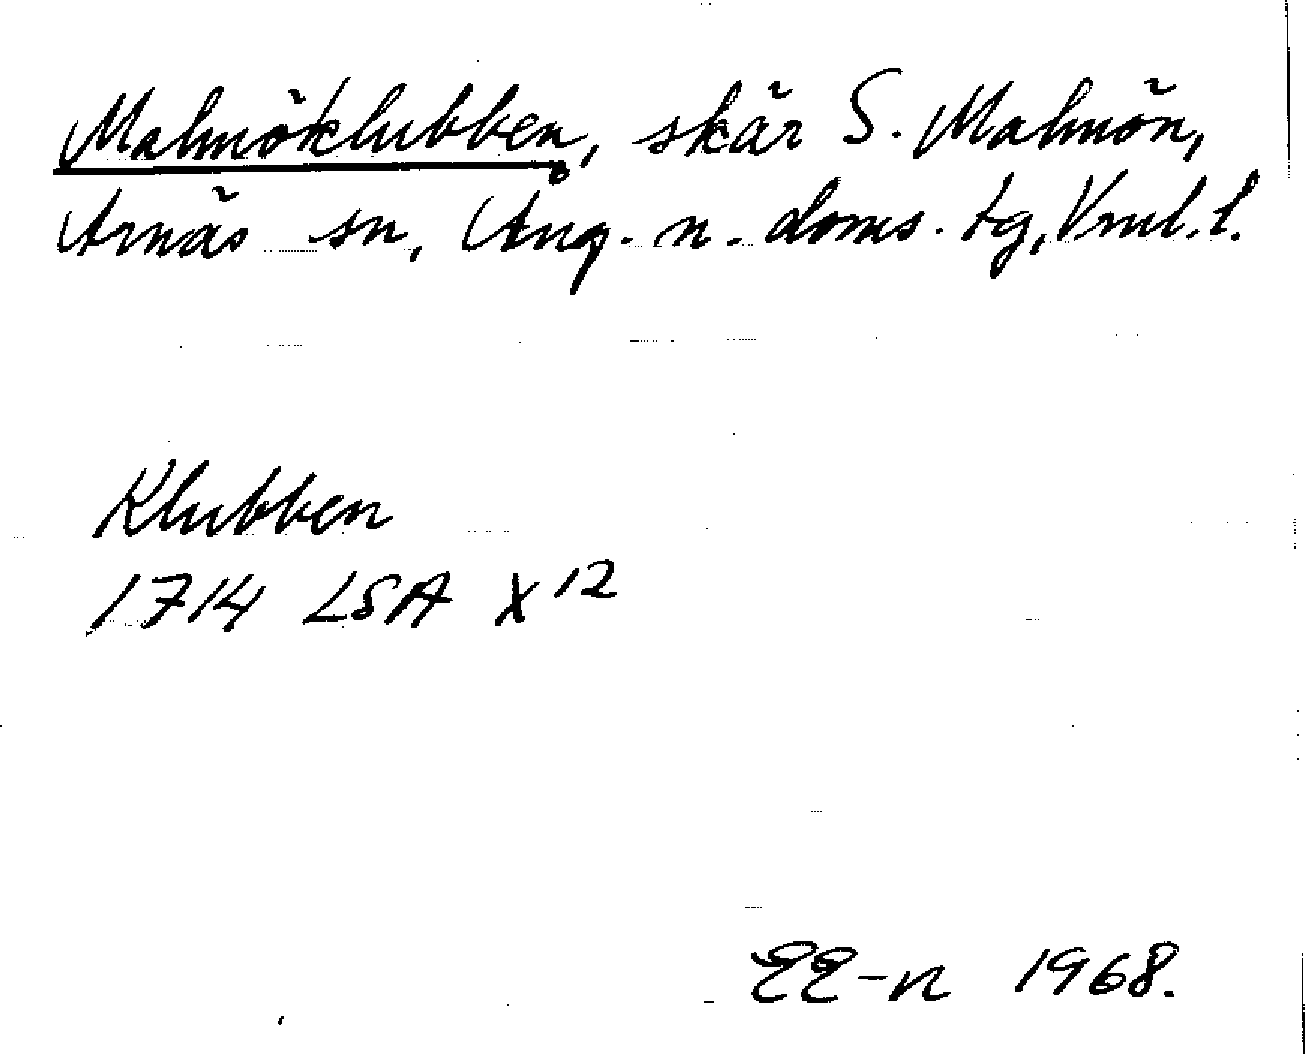 Malmöklubben, skär S. Malmön,
Arnäs sn, Ång. n. doms. tg, Vrnl. l.
Klubben
1714 LSA X 12
EE-n 1968.